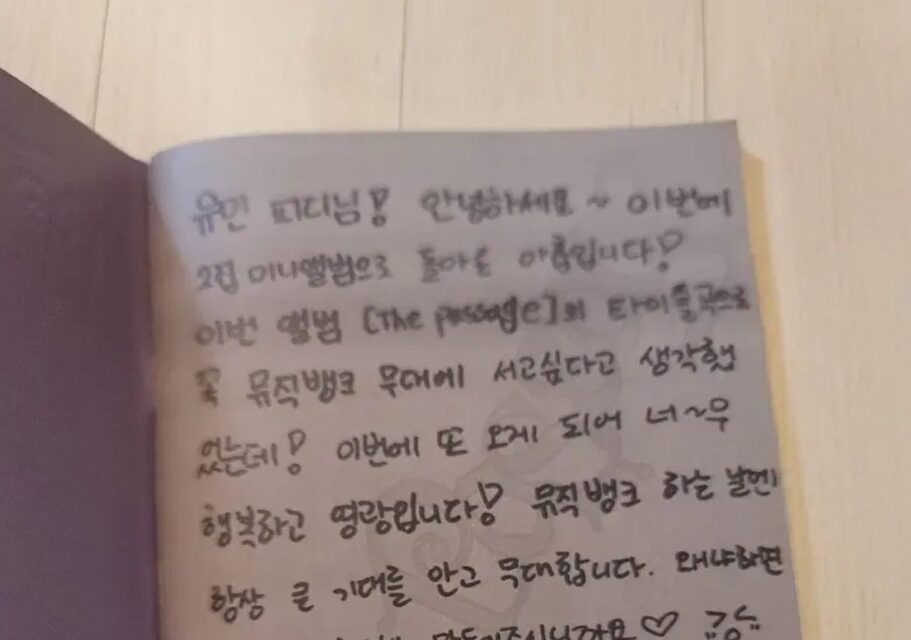 유민 피디님! 안녕하세요 ~ 이번에
2집 미니앨범으로 돌아온 아름입니다!
이번 앨범 [The passage]의 타이틀곡으로
꼭 뮤직뱅크 무대에 서고싶다고 생각했
었는데! 이번에 또 오게 되어 너~무
행복하고 영광입니다! 뮤직뱅크 하는 날엔
항상 큰 기대를 안고 무대합니다. 왜냐하면
만들어주시니까요 ♡